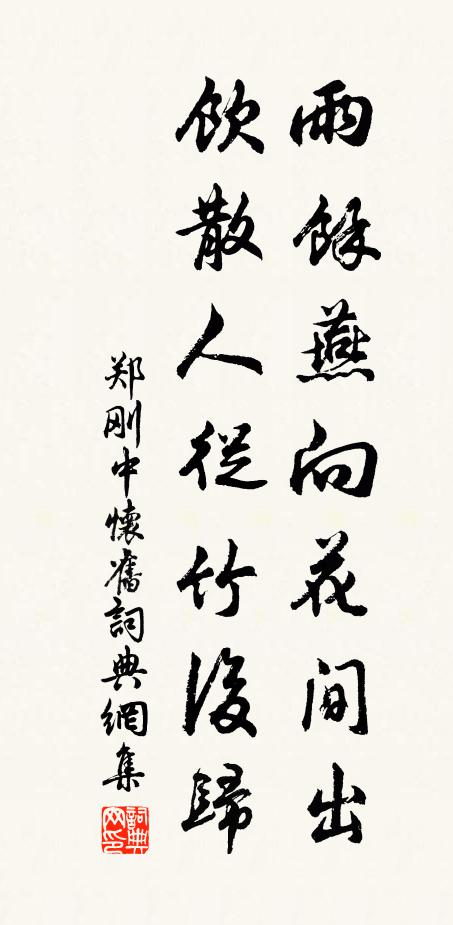 雨餘燕向花間出
飲散人從竹後歸
郑刚中懷舊詞典網集
詞典网印